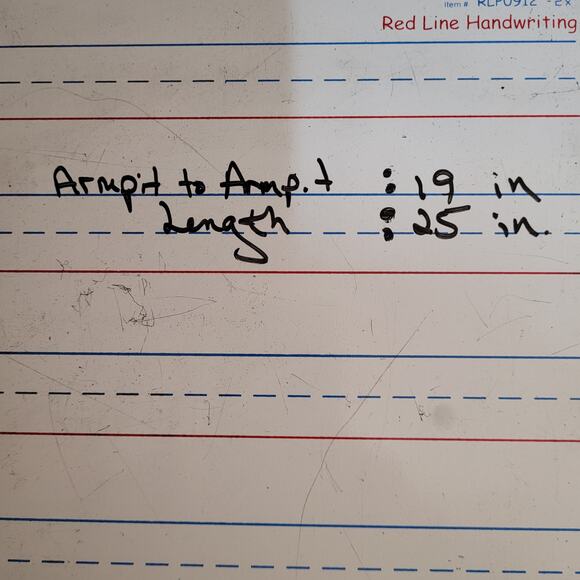 Item # RLP0912 - 2x
Red Line Handwriting
Armpit to Armpit : 19 in
Length : 25 in.